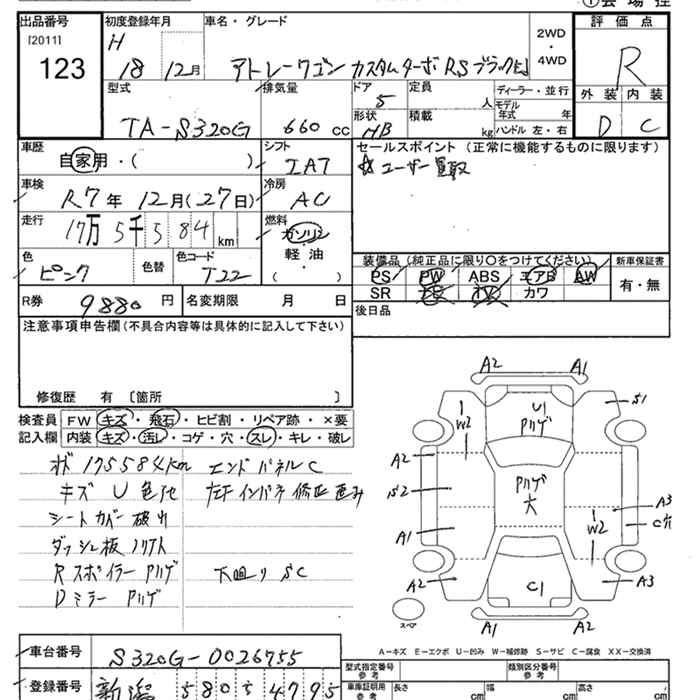 出品番号 初度登録年月 車名・グレード 2WD・4WD 評価点
[2011]
123
H 18 12月 アトレーワゴン カスタムターボRSブラック
R
外装 内装
D C
型式 排気量 ドア 定員 ディーラー・並行
TA-S320G 660cc 5 人 モデル年式 年
形状 積載 ハンドル 左・右
HB kg
車歴 シフト セールスポイント (正常に機能するものに限ります)
自家用・( ) IAT ☆ユーザー買取
車検 冷房
R7年 12月(27日) AC
走行 燃料
17万5千584km ガソリン
軽・油
( )
色 色替 色コード
ピンク T22
装備品 (純正品に限り○をつけてください) 新車保証書
PS PW ABS エアB AW 有・無
SR ナビ カワ
R券 9880円 名変期限 月 日 後日品
注意事項申告欄 (不具合内容等は具体的に記入して下さい)
修復歴 有 〔箇所 〕
検査員 FW キズ・飛石・ヒビ割・リペア跡・×要
記入欄 内装 キズ・汚レ・コゲ・穴・スレ・キレ・破レ
175584km エンドパネルC
キズ U 色アセ 左Fインパネ修正歪み
シートカバー破れ
ダッシュ板ノリアト
Rスポイラー Pハゲ 下回り SC
Dミラー Pハゲ
A2 A1
U1 Pハゲ
W2 S1
A2 Pハゲ 大
S2 A3
W2
A1
A2 C1 A3
スペア
A1 A2
A-キズ E-エクボ U-凹み W-補修跡 S-サビ C-腐食 XX-交換済
車台番号 S320G-0026755
型式指定番号 参考 類別区分番号 参考
登録番号 新潟 580 5 4795
車庫証明用 参考 長さ cm 幅 cm 高さ cm